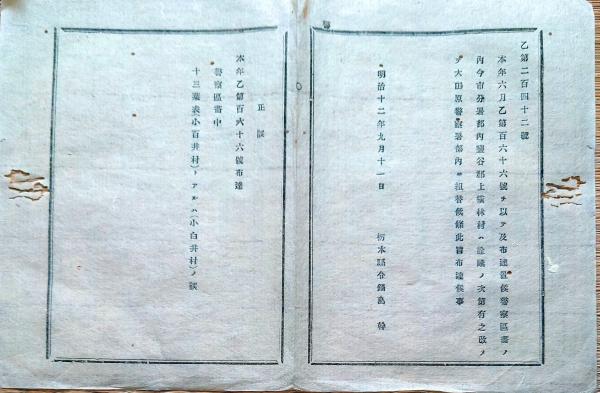 乙第二百四十二號
本年六月乙第百六十六號ヲ以テ及布達置候警察區畫ノ
內今市分署部內鹽谷郡上横林村ハ詮議ノ次第有之改メ
テ大田原警察署部內ヘ組替候條此旨布達候事
明治十二年九月十一日 栃木縣令鍋島幹
正誤
本年乙第百六十六號布達
警察區畫中
十三葉表小百井村)トアルハ(小白井村)ノ誤